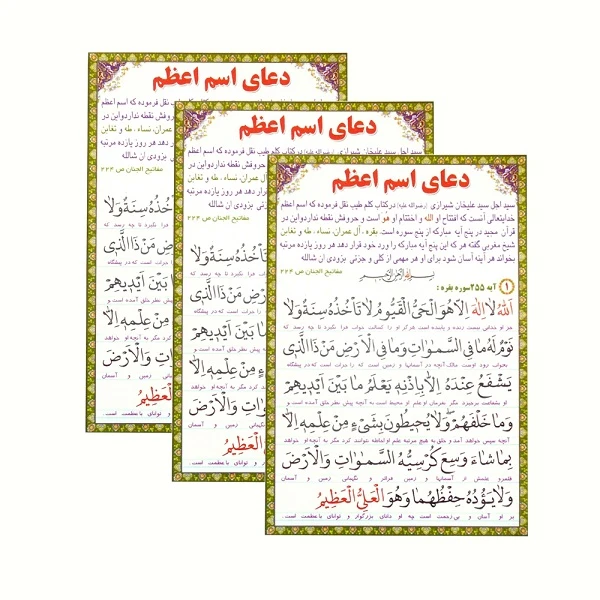 دعای اسم اعظم
دعای اسم اعظم
دعای اسم اعظم
سید اجل سید علیخان شیرازی (رضوالله علیه) در کتاب کلم طیب نقل فرموده که اسم اعظم
خدایتعالی آنست که افتتاح او الله و اختتام او هو است و حروفش نقطه ندارد واین در
قرآن مجید در پنج آیه مبارکه از پنج سوره است. بقره ، آل عمران، نساء ، طه و تغابن
شیخ مغربی گفته هر که این پنج آیه مبارکه را ورد خود قرار دهد هر روز یازده مرتبه
بخواند هر آینه آسان شود برای او هر مهمی از کلی و جزئی بزودی ان شالله
مفاتیح الجنان ص ۲۲۴
بسم الله الرحمن الرحیم
۱ آیه ۲۵۵ سوره بقره :
اَللّٰهُ لا اِلٰهَ اِلاّ هُوَ الْحَیُّ الْقَیُّومُ لا تَأْخُذُهُ سِنَةٌ وَلا
جز او خدایی نیست زنده و پاینده است هرگز او را کسالت خواب فرا نگیرد تا چه رسد که
نَوْمٌ لَهُ ما فِی السَّمٰوٰاتِ وَما فِی الْاَرْضِ مَنْ ذَا الَّذی
بخواب رود اوست مالک آنچه در آسمانها و زمین است که را جرات است که در پیشگاه
یَشْفَعُ عِنْدَهُ اِلاّ بِاِذْنِهِ یَعْلَمُ ما بَیْنَ اَیْدیهِمْ
او بشفاعت برخیزد مگر بفرمان او علم او محیط است به آنچه پیش نظر خلق آمده است و
وَما خَلْفَهُمْ وَلا یُحیطُونَ بِشَیْءٍ مِنْ عِلْمِهِ اِلاّ
آنچه سپس خواهد آمد و خلق به هیچ مرتبه علم او احاطه نتوانند کرد مگر به آنچه او خواهد
بِما شاءَ وَسِعَ کُرْسِیُّهُ السَّمٰوٰاتِ وَالْاَرْضَ
قلمرو علمش از آسمانها و زمین فراتر و نگهبانی زمین و آسمان
وَلا یَؤُدُهُ حِفْظُهُما وَهُوَ الْعَلِیُّ الْعَظیمُ
بر او آسان و بی زحمت است چه او دانای بزرگوار و توانای با عظمت است.